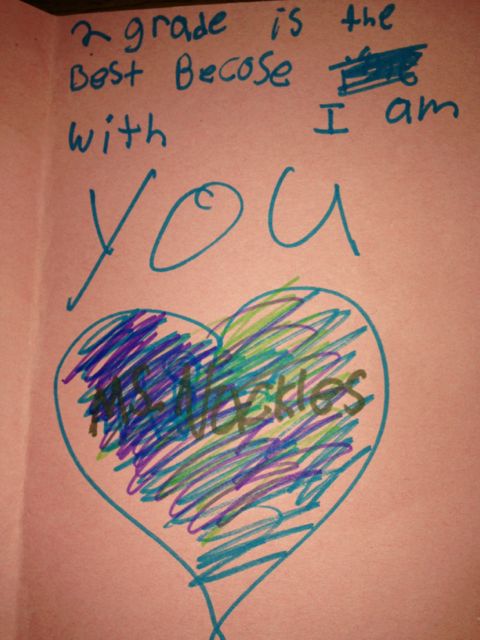 2 grade is the
Best Becose
with I am
YOU
Ms. Nackles